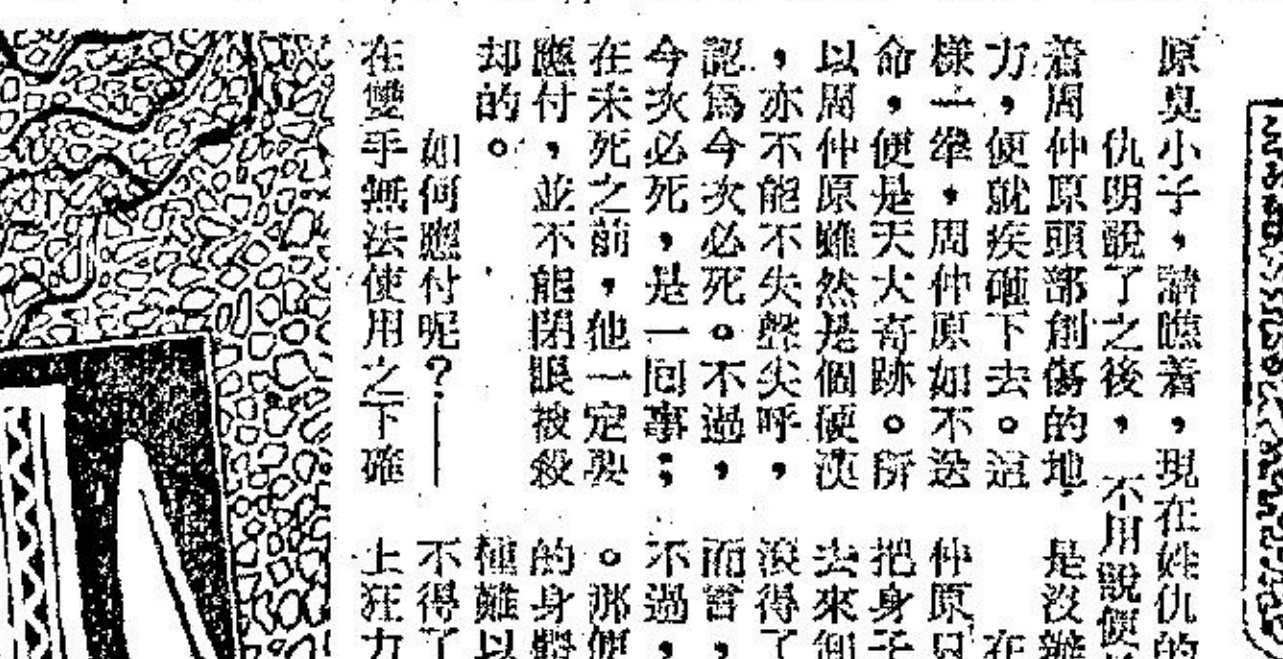 原臭小子，請瞧着，現在姓仇的
仇明說了之後，不用說便
着周仲原頭部創傷的地
力，便就疾砸下去。這
樣一舉，周仲原如不送
命，便是天大奇跡。所
以周仲原雖然是個硬漢
，亦不能不失聲尖呼，
認爲今次必死。不過，
今次必死，是一囘事；
在未死之前，他一定要
應付，並不能閉眼被殺
却的。
如何應付呢？——
在雙手無法使用之下確
是沒辦
在
仲原只
把身子
去來
滾得了
而
不過，
。那便
的身體
種難以
不得了
上狂力